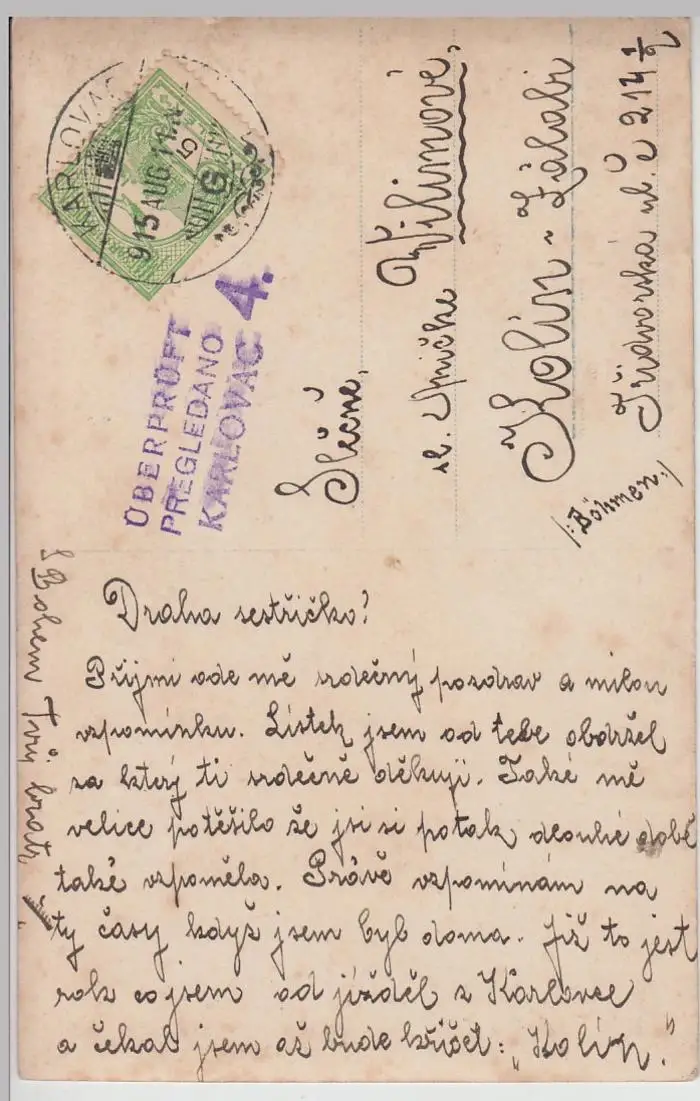 KARLOVAC
915 AUG 11
ÜBERPRÜFT
PREGLEDANO
KARLOVAC 4.
Slečně,
sl. Aničke Vilímové,
Kolín - Zálabí
Třídvorská ul. č 214 1/9
/:Böhmen:/
Draha sestřičko!
Přijmi ode mě srdečný pozdrav a milou
vzpomínku. Lístek jsem od tebe obdržel
za který ti srdečně děkuji. Také mě
velice potěšilo že jsi si potak dlouhé době
také vzpoměla. Právě vzpomínám na
ty časy když jsem byl doma. Již to jest
rok co jsem od jížděl z Karlovce
a čekal jsem až bude křičet: „Kolín."
S Bohem Tvůj bratr